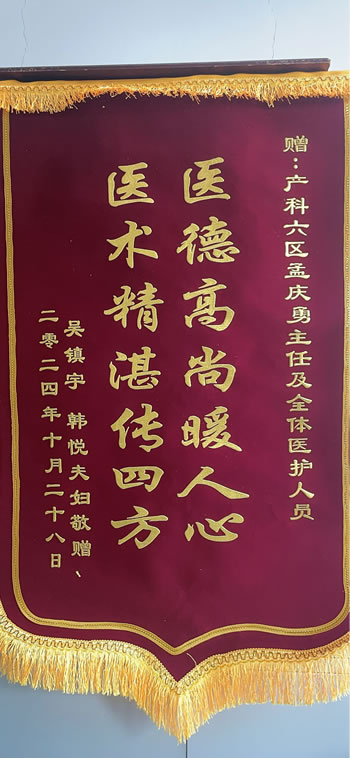 赠:产科六区孟庆勇主任及全体医护人员
医德高尚暖人心
医术精湛传四方
吴镇宇 韩悦夫妇敬赠、
二零二四年十月二十八日